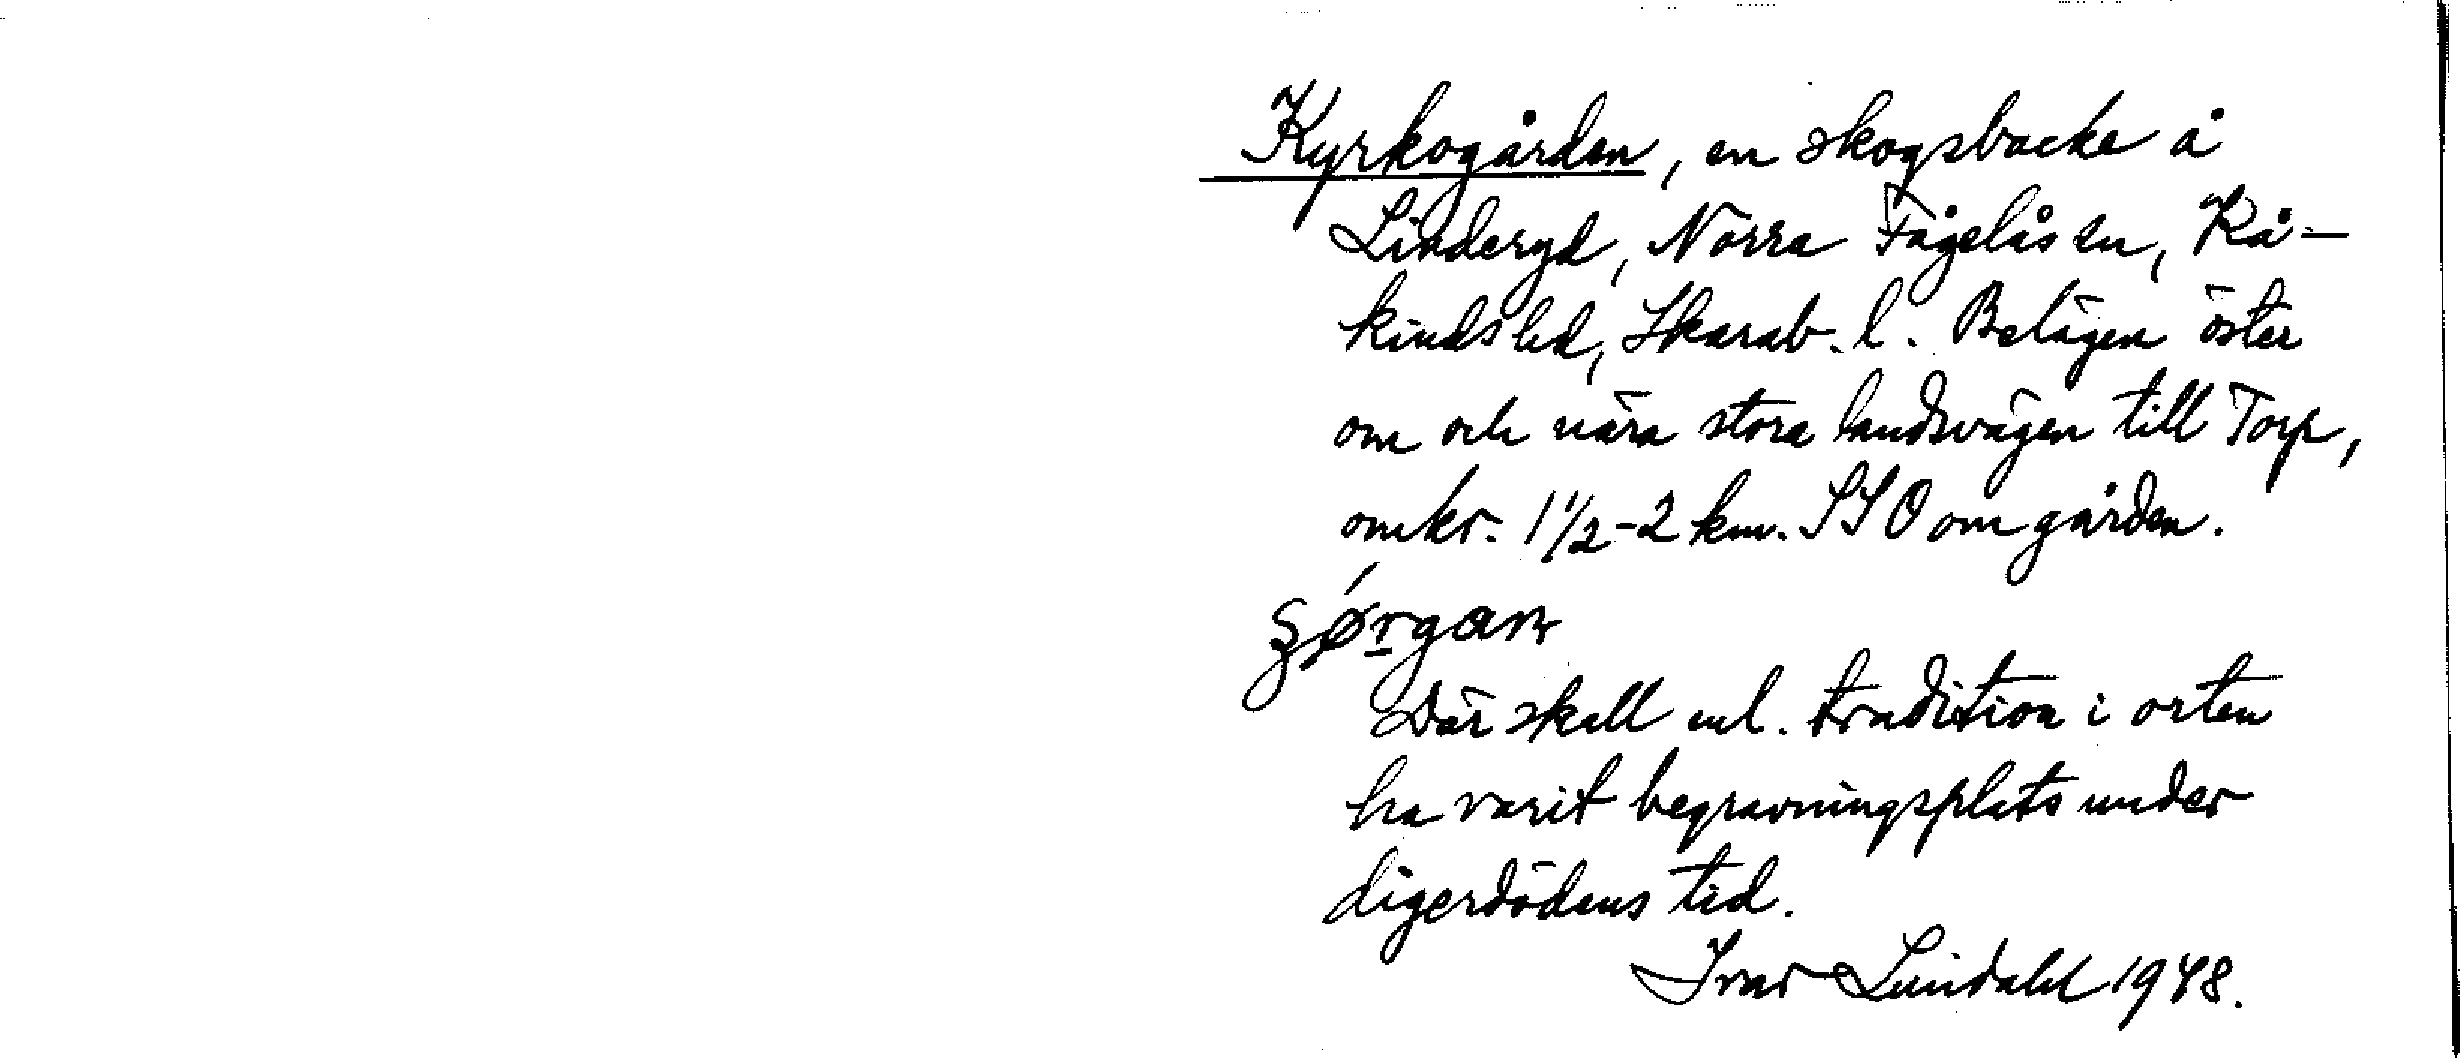 Kyrkogården, en skogsbacke å
Linderyd, Norra Fågelås sn, Kå-
kinds hd, Skarab. l. Belägen öster
om och nära stora landsvägen till Torp,
omkr. 1 1/2-2 km. SSO om gården.
Där skall enl. tradition i orten
ha varit begravningsplats under
digerdödens tid.
Ivar Lundahl 1948.